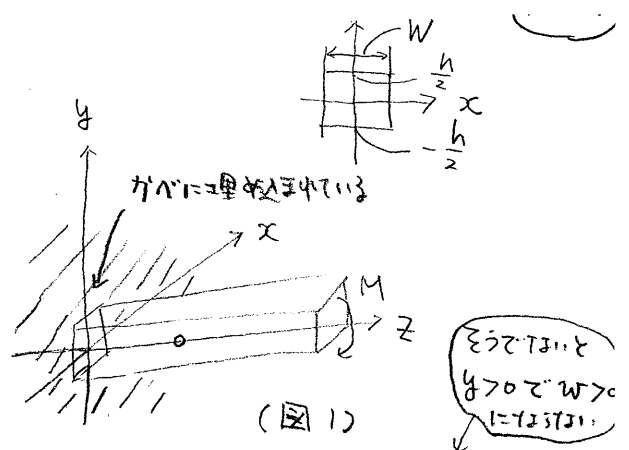 W
h/2
x
-h/2
y
かべに埋め込まれている
x
M
z
そうでないと
y>0でw>0
にならない
(図1)